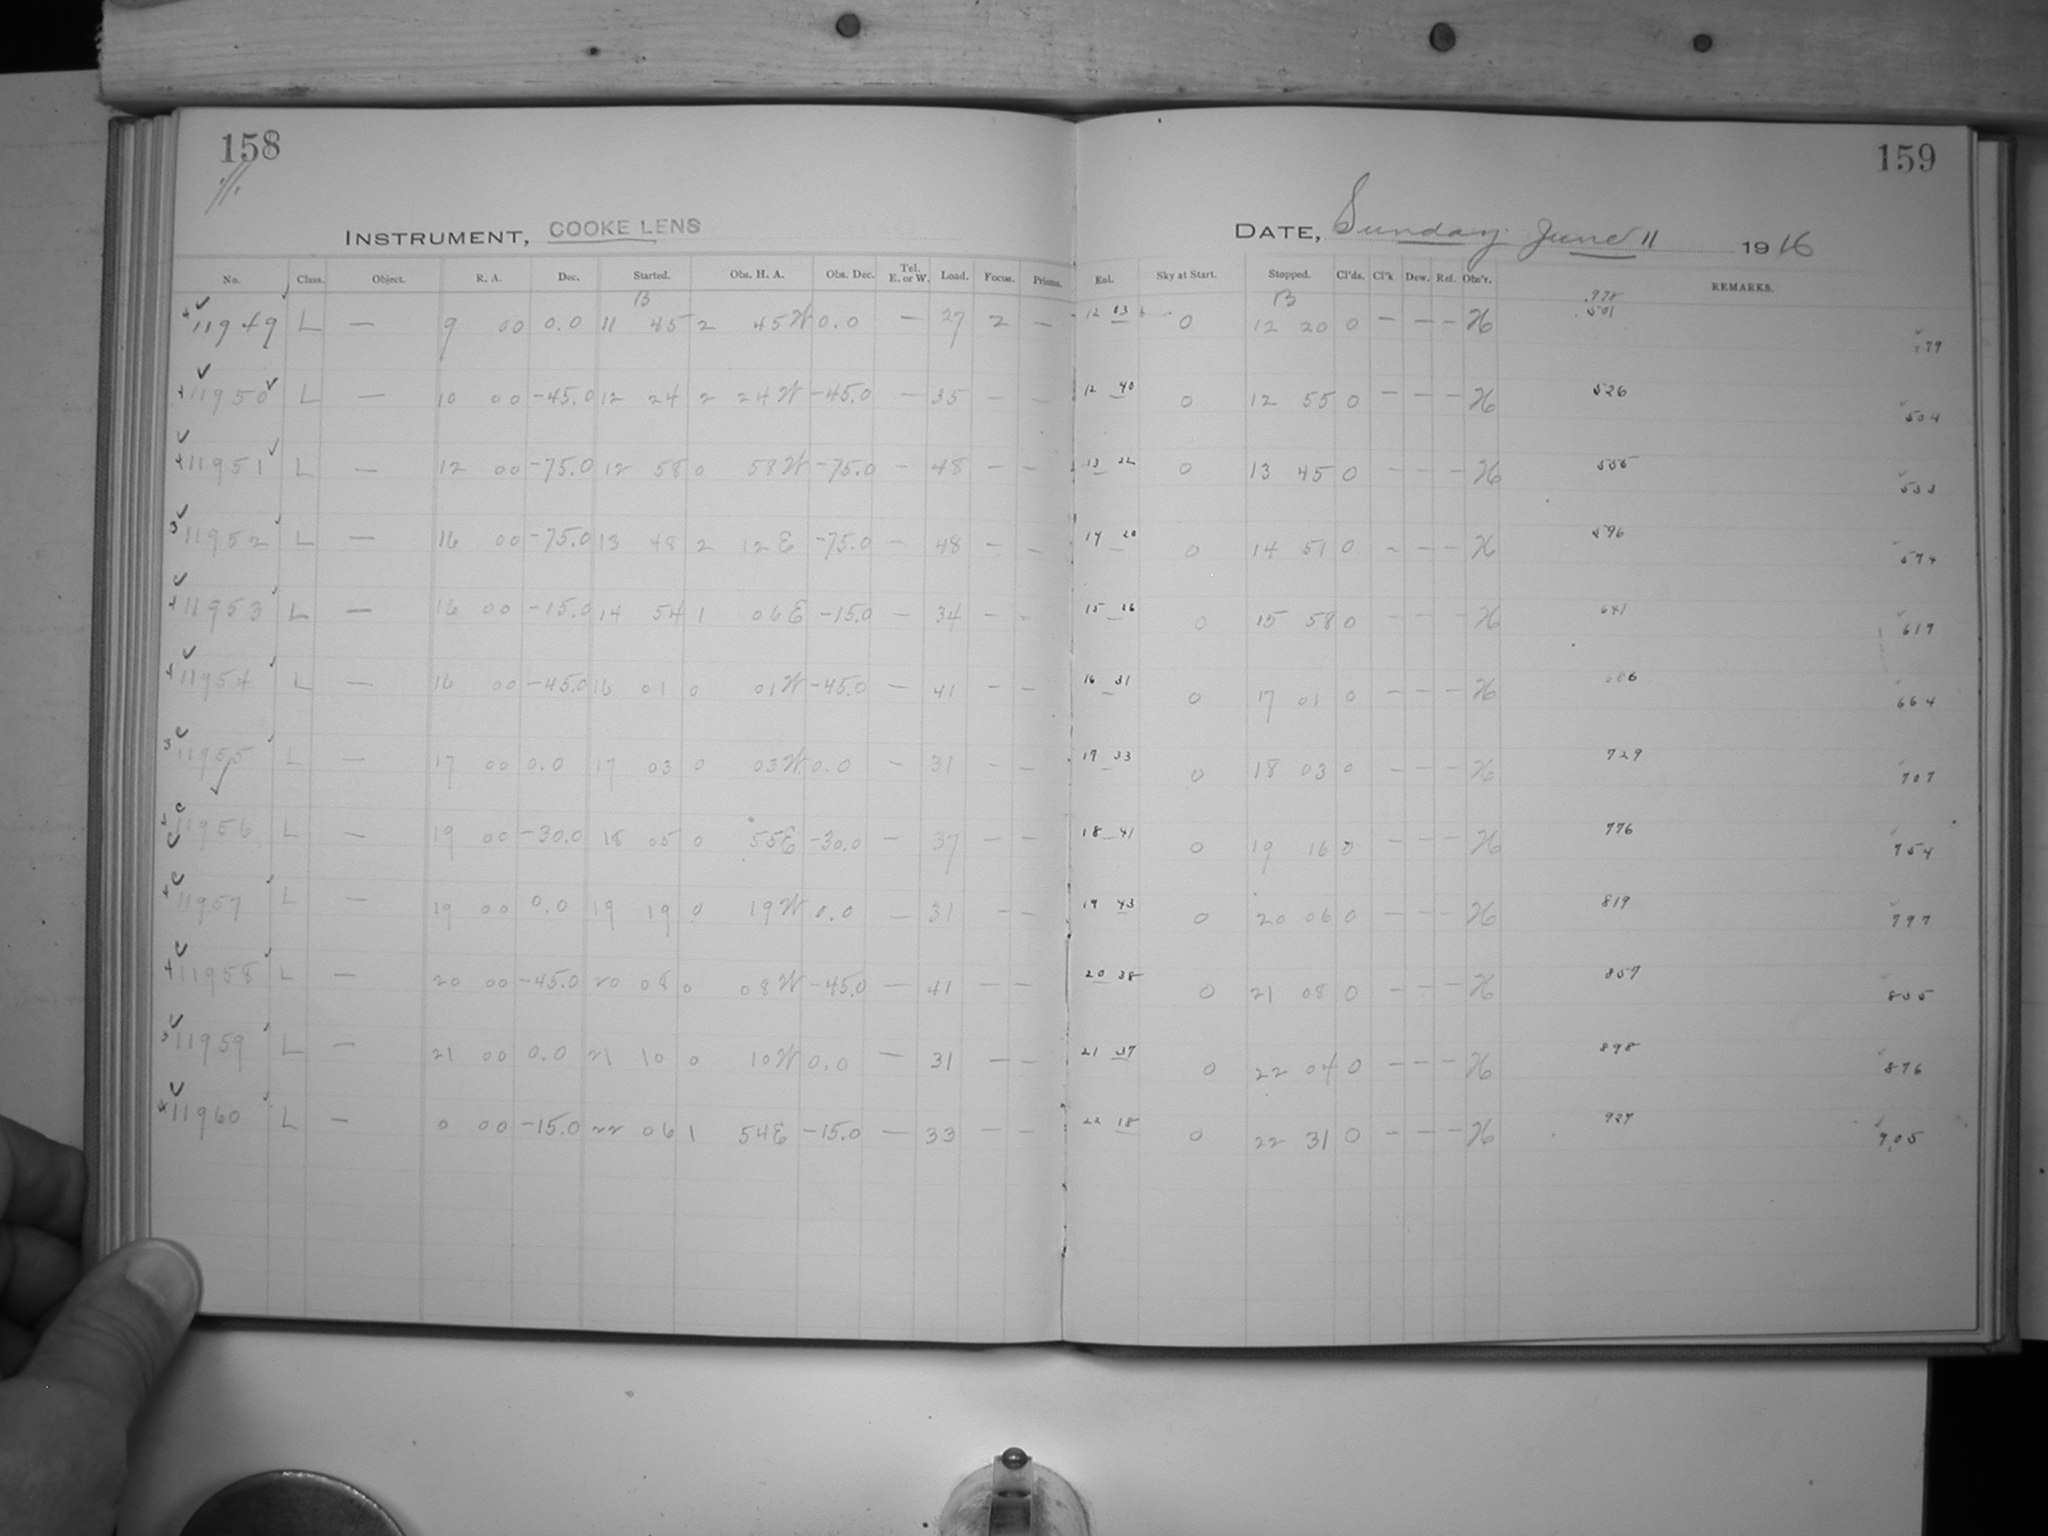 158
159
INSTRUMENT, COOKE LENS
DATE, Sunday June 11 1916
No. Class. Object. R. A. Dec. Started. Obs. H. A. Obs. Dec. Tel. E. or W. Load. Focus. Prisms. Enl. Sky at Start. Stopped. Cl'ds. Cl'k Dew. Ref. Obs'r. REMARKS.
B B .978
11949 L — 9 00 0.0 11 45 2 45 W 0.0 — 27 2 — 12 03 0 12 20 0 — — — H 501 479
11950 L — 10 00 -45.0 12 24 2 24 W -45.0 — 35 — — 12 40 0 12 55 0 — — — H 526 504
11951 L — 12 00 -75.0 12 58 0 58 W -75.0 — 48 — — 13 22 0 13 45 0 — — — H 555 533
11952 L — 16 00 -75.0 13 48 2 12 E -75.0 — 48 — — 14 20 0 14 51 0 — — — H 596 574
11953 L — 16 00 -15.0 14 54 1 06 E -15.0 — 34 — — 15 26 0 15 58 0 — — — H 641 619
11954 L — 16 00 -45.0 16 01 0 01 W -45.0 — 41 — — 16 31 0 17 01 0 — — — H 686 664
11955 L — 17 00 0.0 17 03 0 03 W 0.0 — 31 — — 17 33 0 18 03 0 — — — H 729 707
11956 L — 19 00 -30.0 18 05 0 55 E -30.0 — 37 — — 18 41 0 19 16 0 — — — H 776 754
11957 L — 19 00 0.0 19 19 0 19 W 0.0 — 31 — — 19 43 0 20 06 0 — — — H 819 797
11958 L — 20 00 -45.0 20 08 0 08 W -45.0 — 41 — — 20 38 0 21 08 0 — — — H 857 835
11959 L — 21 00 0.0 21 10 0 10 W 0.0 — 31 — — 21 37 0 22 04 0 — — — H 898 876
11960 L — 0 00 -15.0 22 06 1 54 E -15.0 — 33 — — 22 18 0 22 31 0 — — — H 927 905